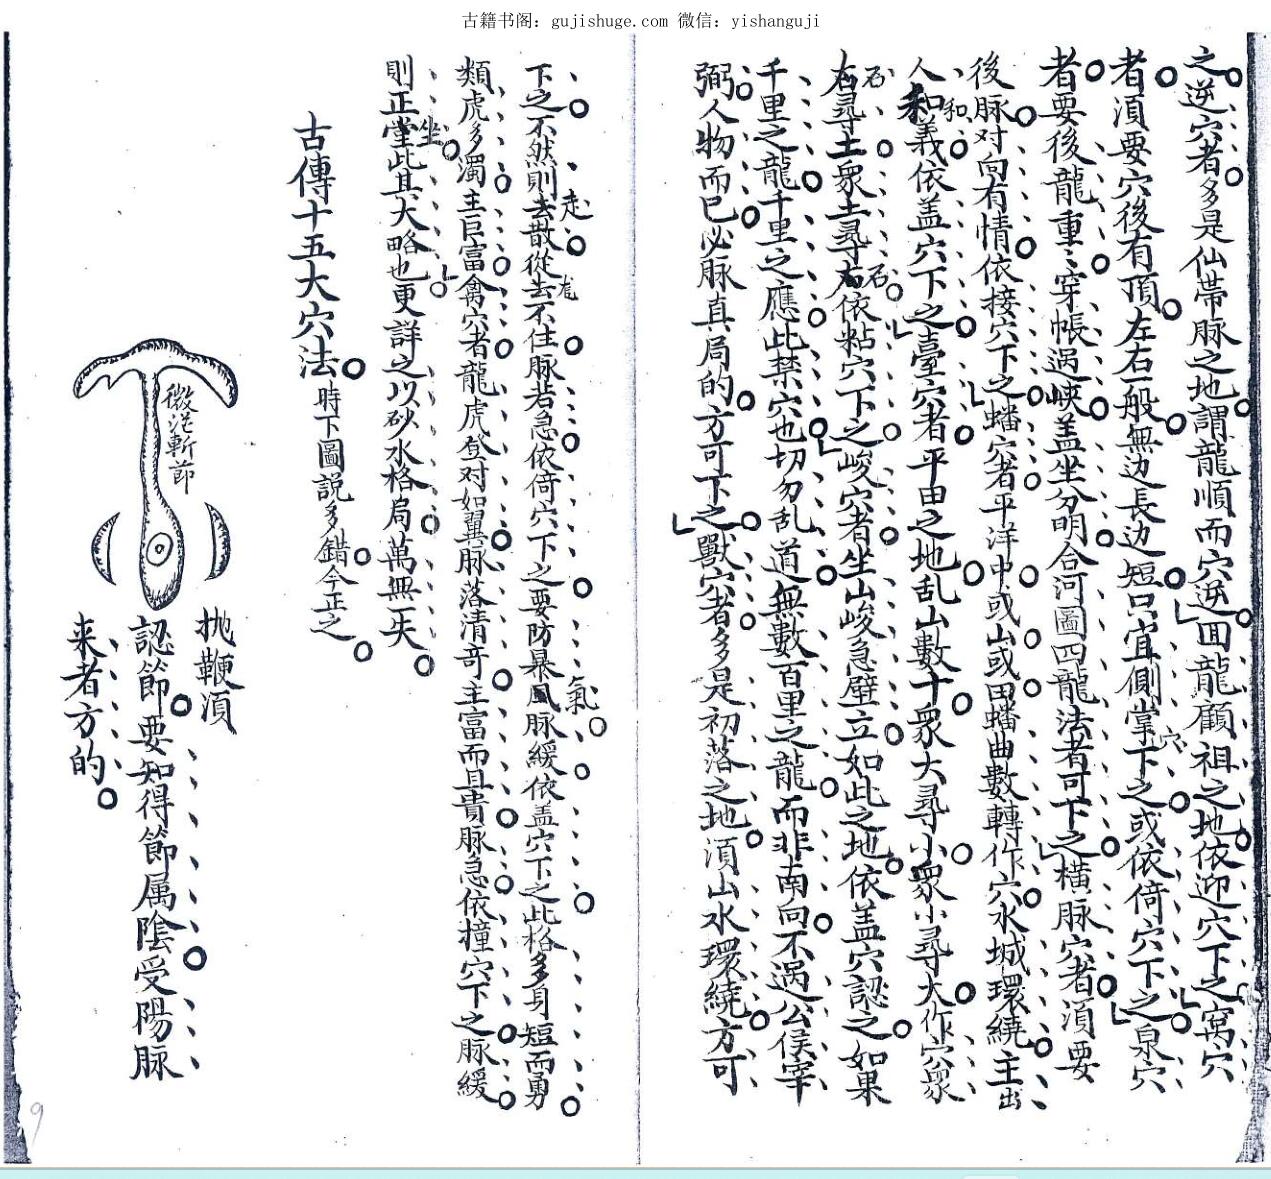 古籍书阁：gujishuge.com 微信：yishanguji
之逆穴者多是仙帶脉之地謂龍順而穴逆囬龍顧祖之地依迎穴下之窩穴
者湏要穴後有頂左右一般無边長边短只宜側掌下之或依倚穴下之泉穴
穴
者要後龍重〻穿帳過峽盖坐分明合河圖四龍法者可下之橫脉穴者湏要
後脉对向有情依接穴下之蟠穴者平洋中或山或田蟠曲數轉作穴水城環繞主出
人和義依盖穴下之臺穴者平田之地乱山數十衆大尋小衆小尋大作穴衆
和
右尋土衆土尋右依粘穴下之峻穴者坐山峻急壁立如此之地依盖穴認之如果
石
石
千里之龍千里之應此禁穴也切勿乱道無數百里之龍而非南向不過公侯宰
弼人物而已必脉真局的方可下之獸穴者多是初落之地湏山水環繞方可
下之不然則去散從去不住脉若急依倚穴下之要防暴風脉緩依盖穴下之此格多身短而勇
走
氣
類虎多濁主巨富禽穴者龍虎登对如翼脉落清奇主富而且貴脉急依撞穴下之脉緩
則正堂此其大略也更詳之以砂水格局萬無一失
坐
古傳十五大穴法
時下圖説多錯今正之
微茫斬節
抛鞭湏
認節要知得節属陰受陽脉
来者方的
9